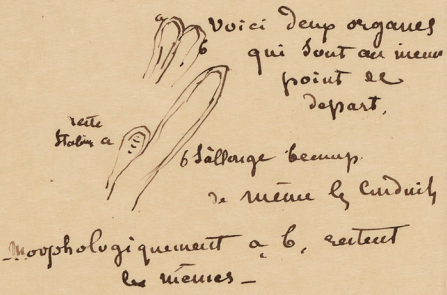 a
b
Voici deux organes
qui sont au meme
point de
depart.
reste
Stable a
b s'allonge beaucoup
de même les conduits
Morphologiquement a, b, restent
les mêmes -